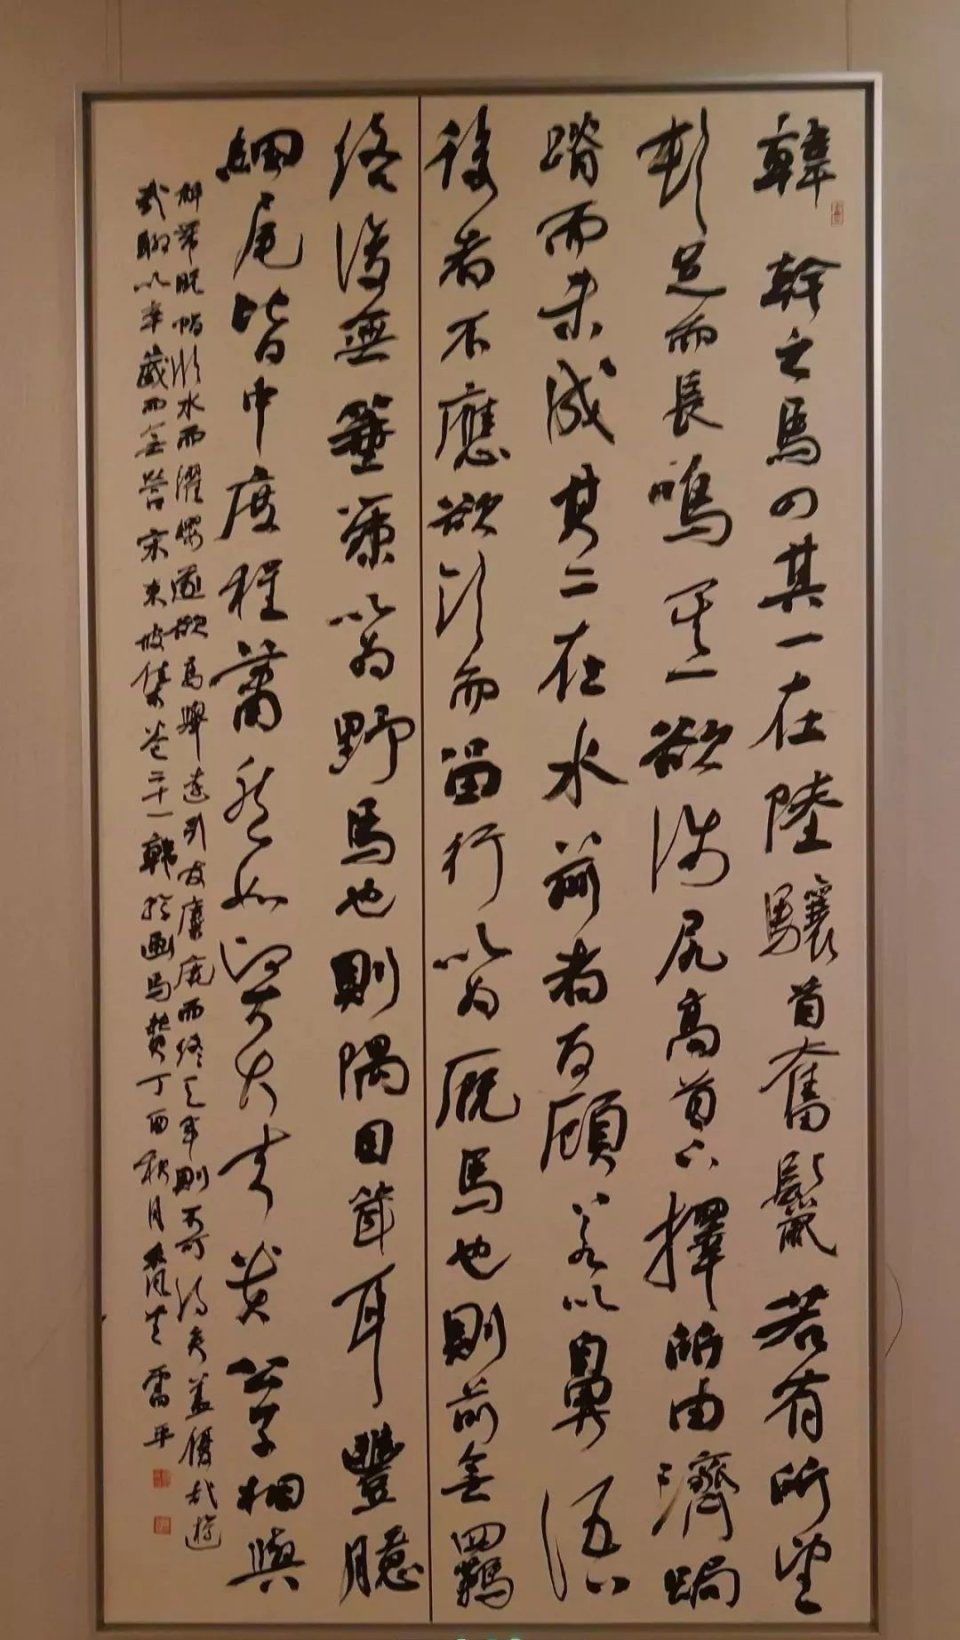 韓幹之馬四其一在陸驤首奮鬣若有所望
頓足而長鳴其一欲涉尻高首下擇所由濟跼
蹐而未成其二在水前者反顧若以鼻語
後者不應欲飲而留行以為厩馬也則前無羈
絡後無箠策以為野馬也則隅目聳耳豐臆
細尾皆中度程蕭然如賢大夫貴公子相與
解帶脫帽臨水而濯纓遂欲高舉遠引友麋鹿而終天年則不可得矣蓋優哉游
哉聊以卒歲而無營宋東坡集卷二十一韓幹畫馬贊丁酉秋月 雷平